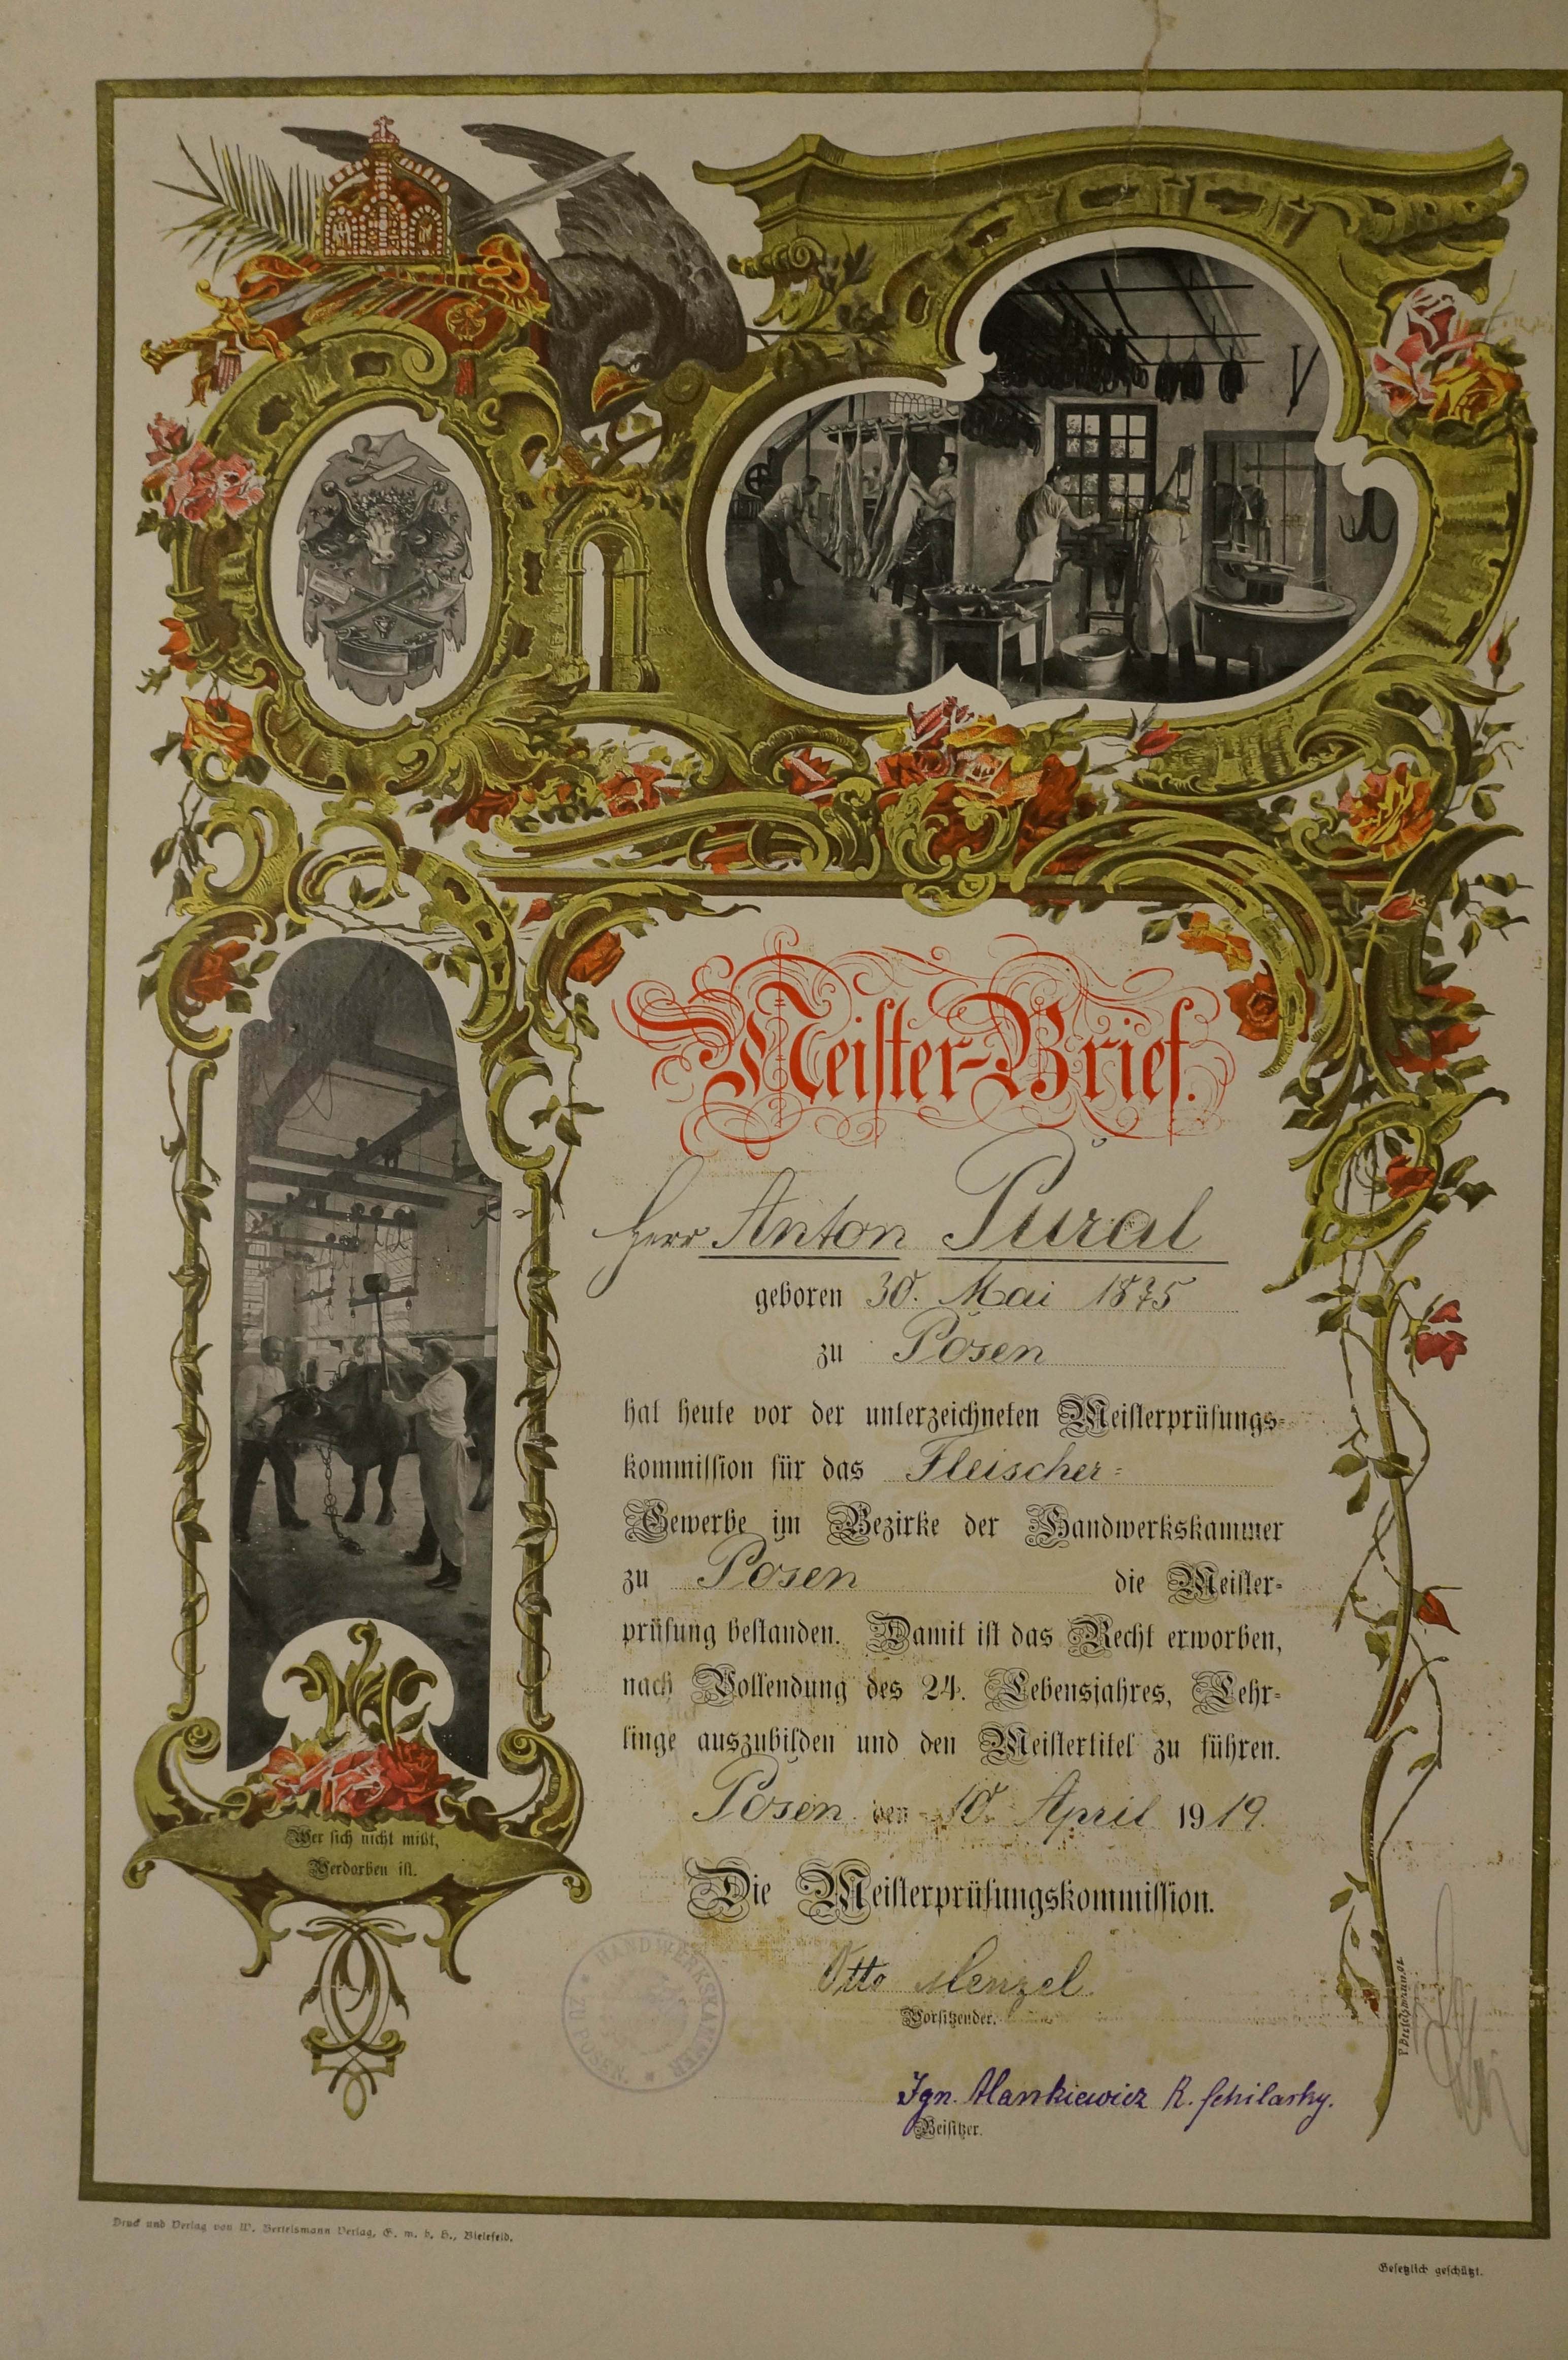 Meister-Brief.
Herr Anton Pural
geboren 30. Mai 1875
zu Posen
hat heute vor der unterzeichneten Meisterprüfungs-
kommission für das Fleischer-
Gewerbe im Bezirke der Handwerkskammer
zu Posen die Meister-
prüfung bestanden. Damit ist das Recht erworben,
nach Vollendung des 24. Lebensjahres, Lehr-
linge auszubilden und den Meistertitel zu führen.
Posen den 10. April 1919.
Wer sich nicht mißt,
Verdorben ist.
Die Meisterprüfungskommission.
HANDWERKSKAMMER ZU POSEN
Otto Menzel.
Vorsitzender.
Ign.
Beisitzer.
Druck und Verlag von W. Bertelsmann Verlag, G. m. b. H., Bielefeld.
Gesetzlich geschützt.